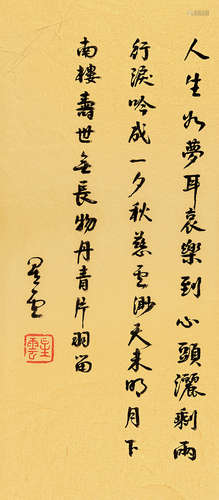 人生如夢耳哀樂到心頭灑剩兩
行淚吟成一夕秋慈雲渺天末明月下
南樓壽世無長物丹青片羽留
星雲
星雲